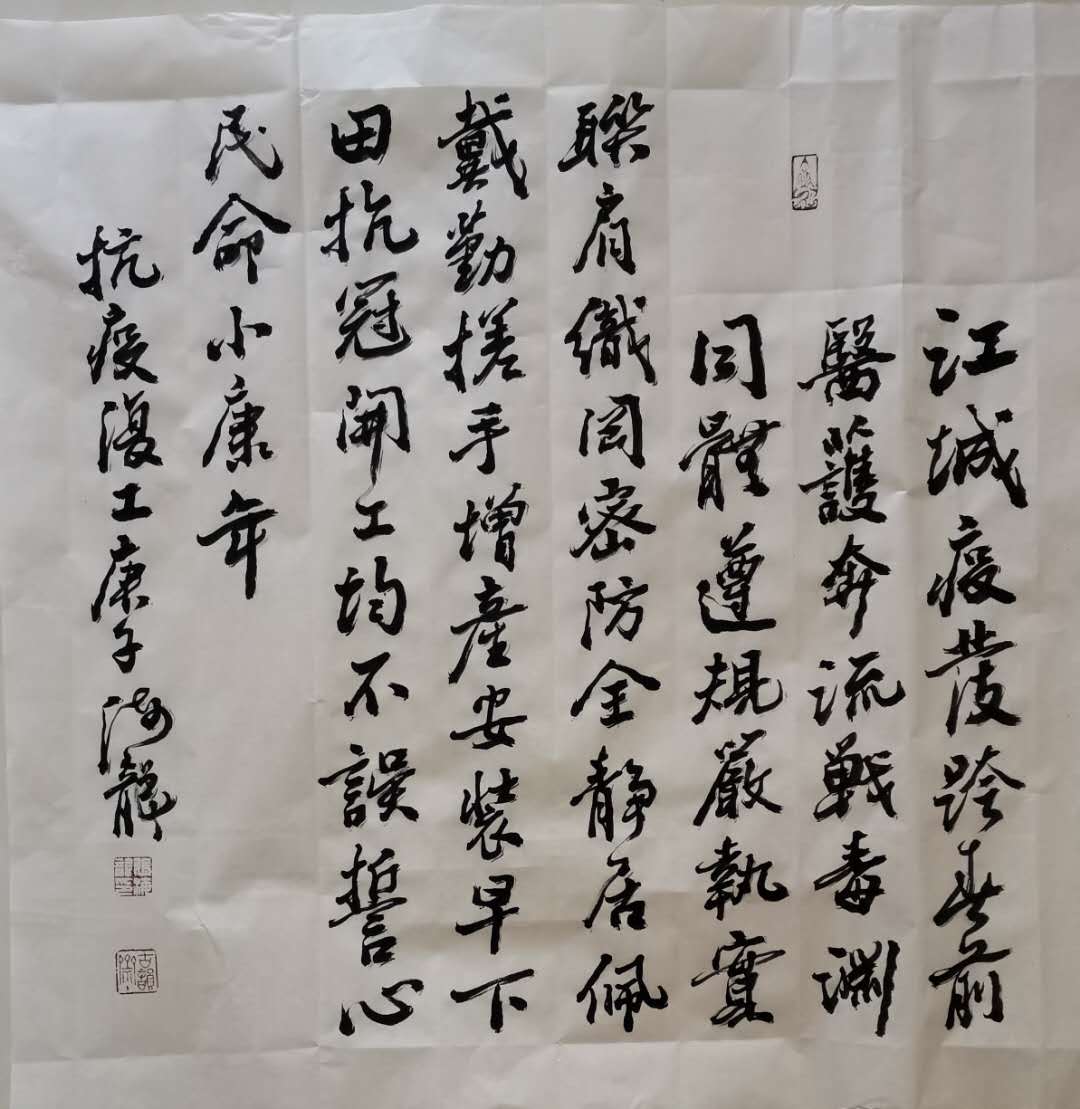 江城疫發跨春前
醫護奔流戰毒淵
同體遵規嚴執實
聯肩織罔密防全靜居佩
戴勤搓手增產安裝早下
田抗冠開工均不誤誓心
民命小康年
抗疫復工庚子海龍
古韻